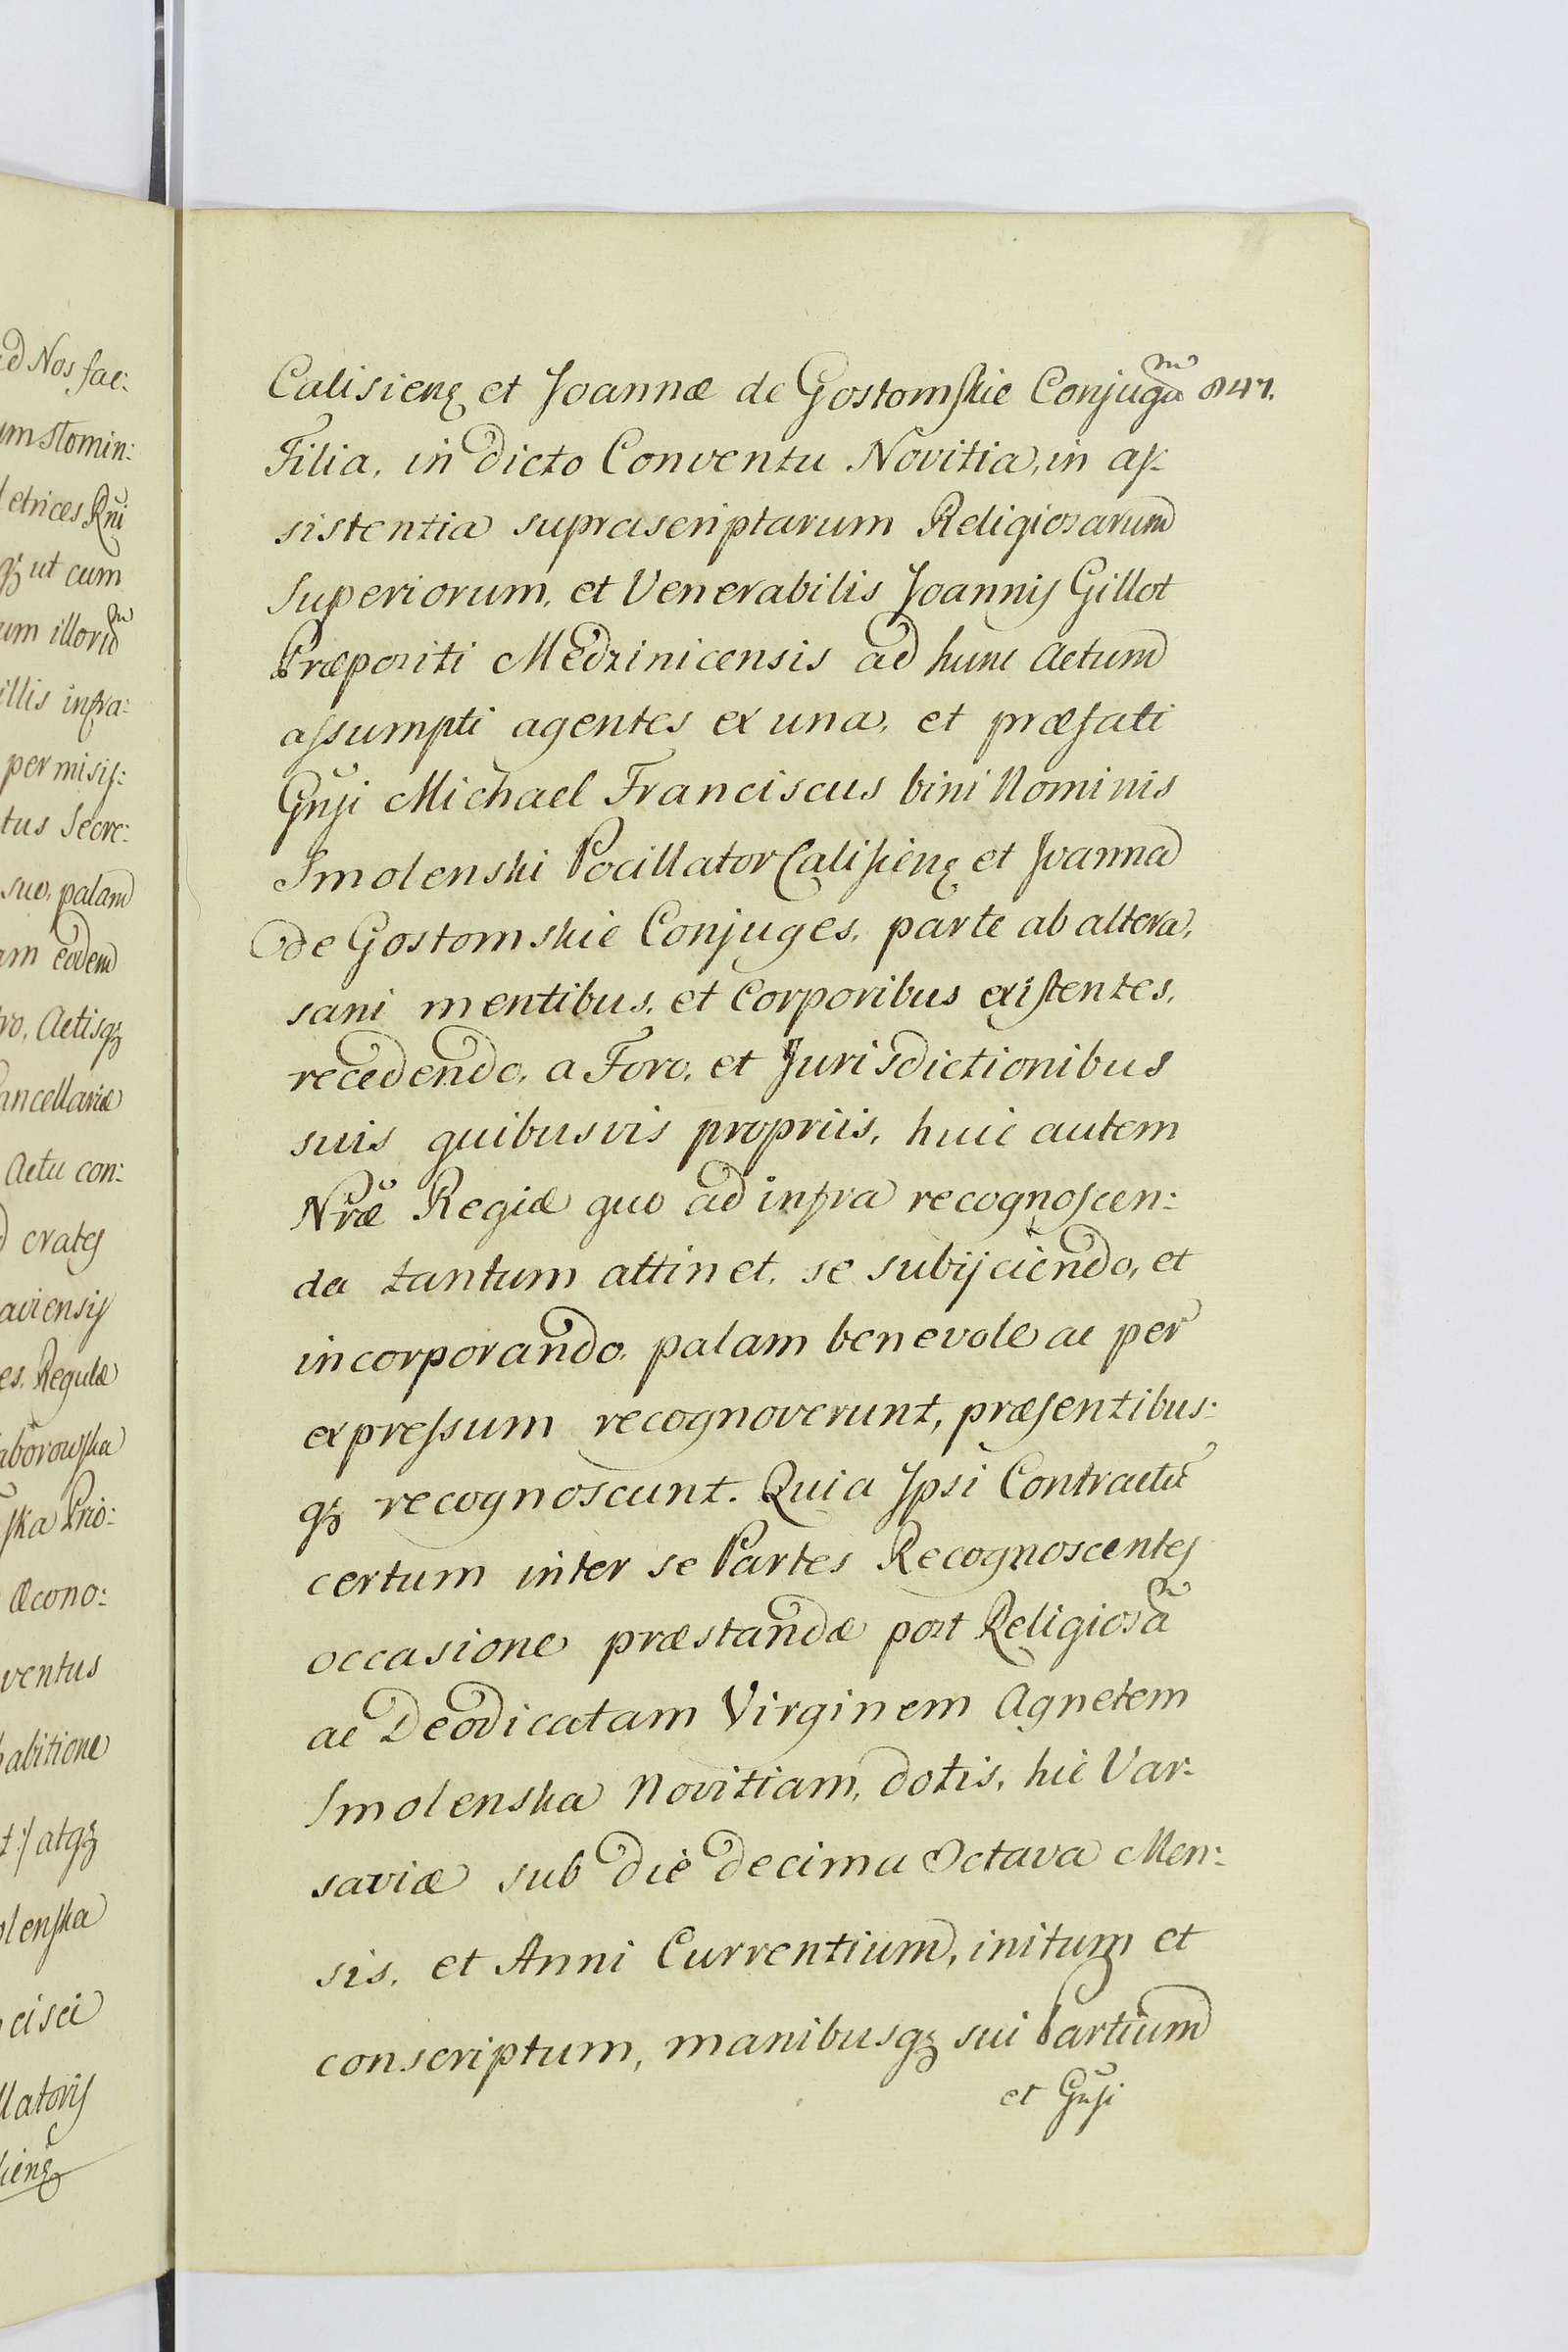 ed Nos fac:
um stomin:
etrices Rñi
qȝ ut cum
um illorũ
illis infra:
permisis:
tus Secre:
suo, palam
am eodem
ro, Actisqȝ
ancellariæ
Actu con:
crates
aviensis
es. Regulæ
aborowska
ska Prio:
œcono:
ventus
abitione
t:/ atqȝ
olenska
cisci
llatoris
Calisienȝ et Joannæ de Gostomskie Conjugũ 847.
Filia, in dicto Conventu Novitia, in as-
sistentia suprascriptarum Religiosarum
Superiorum, et Venerabilis Joannis Gillot
Præpositi Medzinicensis ad hunc Actum
assumpti agentes ex una, et præfati
Gñsi Michael Franciscus bini Nominis
Smolenski Pocillator Calisienȝ et Joanna
de Gostomskie Conjuges, parte ab altera,
sani mentibus, et Corporibus existentes,
recedendo, a Foro, et Jurisdictionibus
suis quibusvis propriis, huic autem
Nr̃æ Regiæ quo ad infra recognoscen:
da tantum attinet, se subijciendo, et
incorporando, palam benevole ac per
expressum recognoverunt, præsentibus:
qȝ recognoscunt. Quia Ipsi Contractũ
certum inter se Partes Recognoscentes
occasione præstandæ post Religiosã
ac Deodicatam Virginem Agnetem
Smolenska Novitiam, dotis, hic Var-
saviæ sub die decima Octava Men:
sis, et Anni Currentium, initum et
conscriptum, manibusqȝ sui Partium
et Gñsi